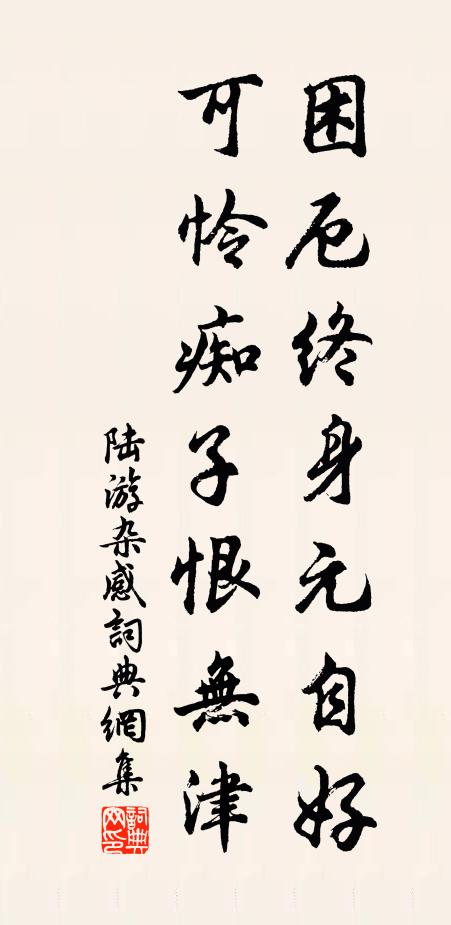 困厄终身元自好
可怜痴子恨無津
陆游杂感詞典網集
詞典網印